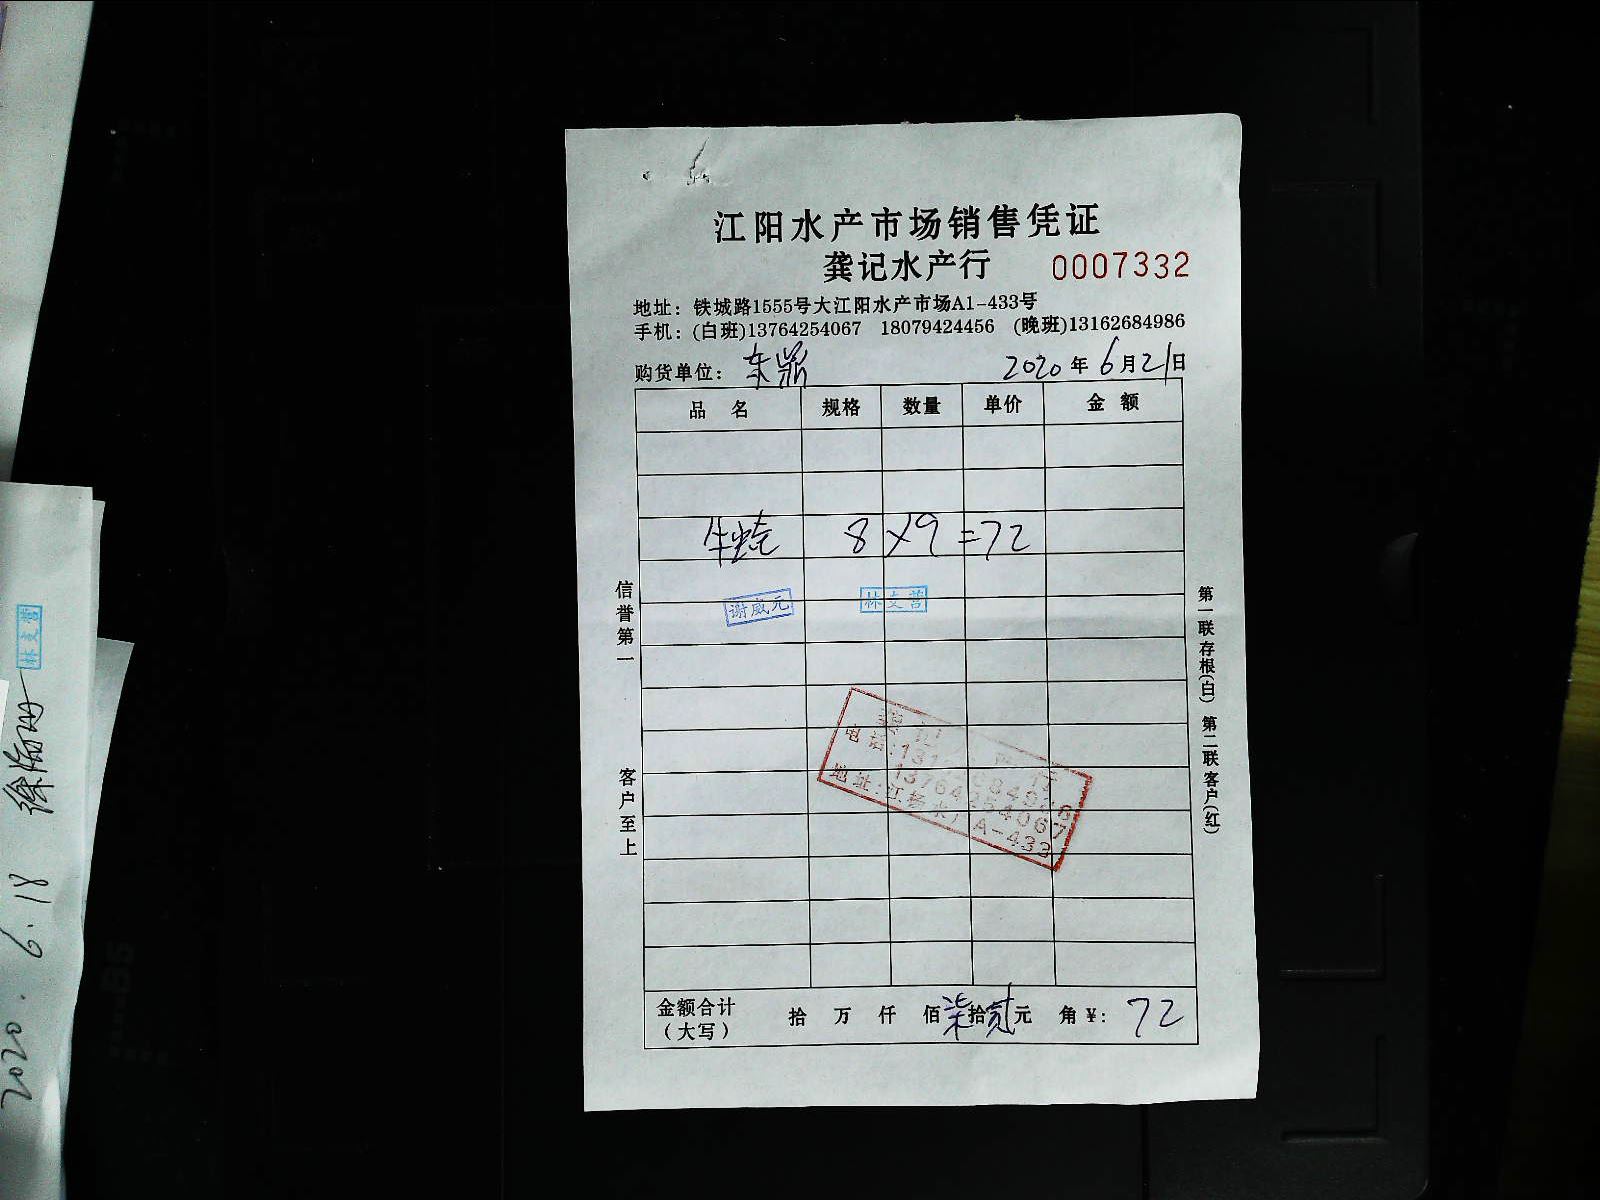 江阳水产市场销售凭证
龚记水产行 0007332
地址：铁城路1555号大江阳水产市场A1-433号
手机：(白班)13764254067 18079424456 (晚班)13162684986
购货单位：东鼎 2020年6月21日
品名 规格 数量 单价 金额
牛蛙 8×9=72
谢威元 林支营
信誉第一
客户至上
第一联存根(白) 第二联客户(红)
电话:13162684986
13764254067
地址:江杨水产A-433
金额合计 拾 万 仟 佰柒拾贰元 角￥: 72
(大写)
林支营
2020.6.18